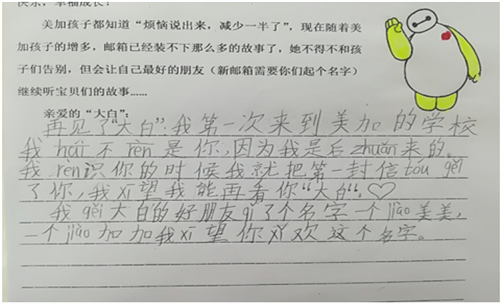 快乐，幸福成长！
美加孩子都知道“烦恼说出来，减少一半了”，现在随着美
加孩子的增多，邮箱已经装不下那么多的故事了，她不得不和孩
子们告别，但会让自己最好的朋友（新邮箱需要你们起个名字）
继续听宝贝们的故事……
亲爱的“大白”：
再见了“大白”：我第一次来到美加的学校
我hái不rèn是你，因为我是后zhuǎn来的。
我rèn识你的时候我就把第一封信tóu gěi
了你，我xī望我能再看你“大白”。♡
我gěi大白的好朋友qǐ了个名字一个jiào美美，
一个jiào加加我xī望你xǐ欢这个名字。